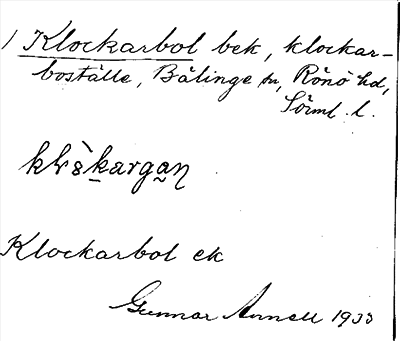 1 Klockarbol bek, klockar-
boställe, Bälinge sn, Rönö hd,
Sörml. l.
Klockarbol ek
Gunnar Annell 1933